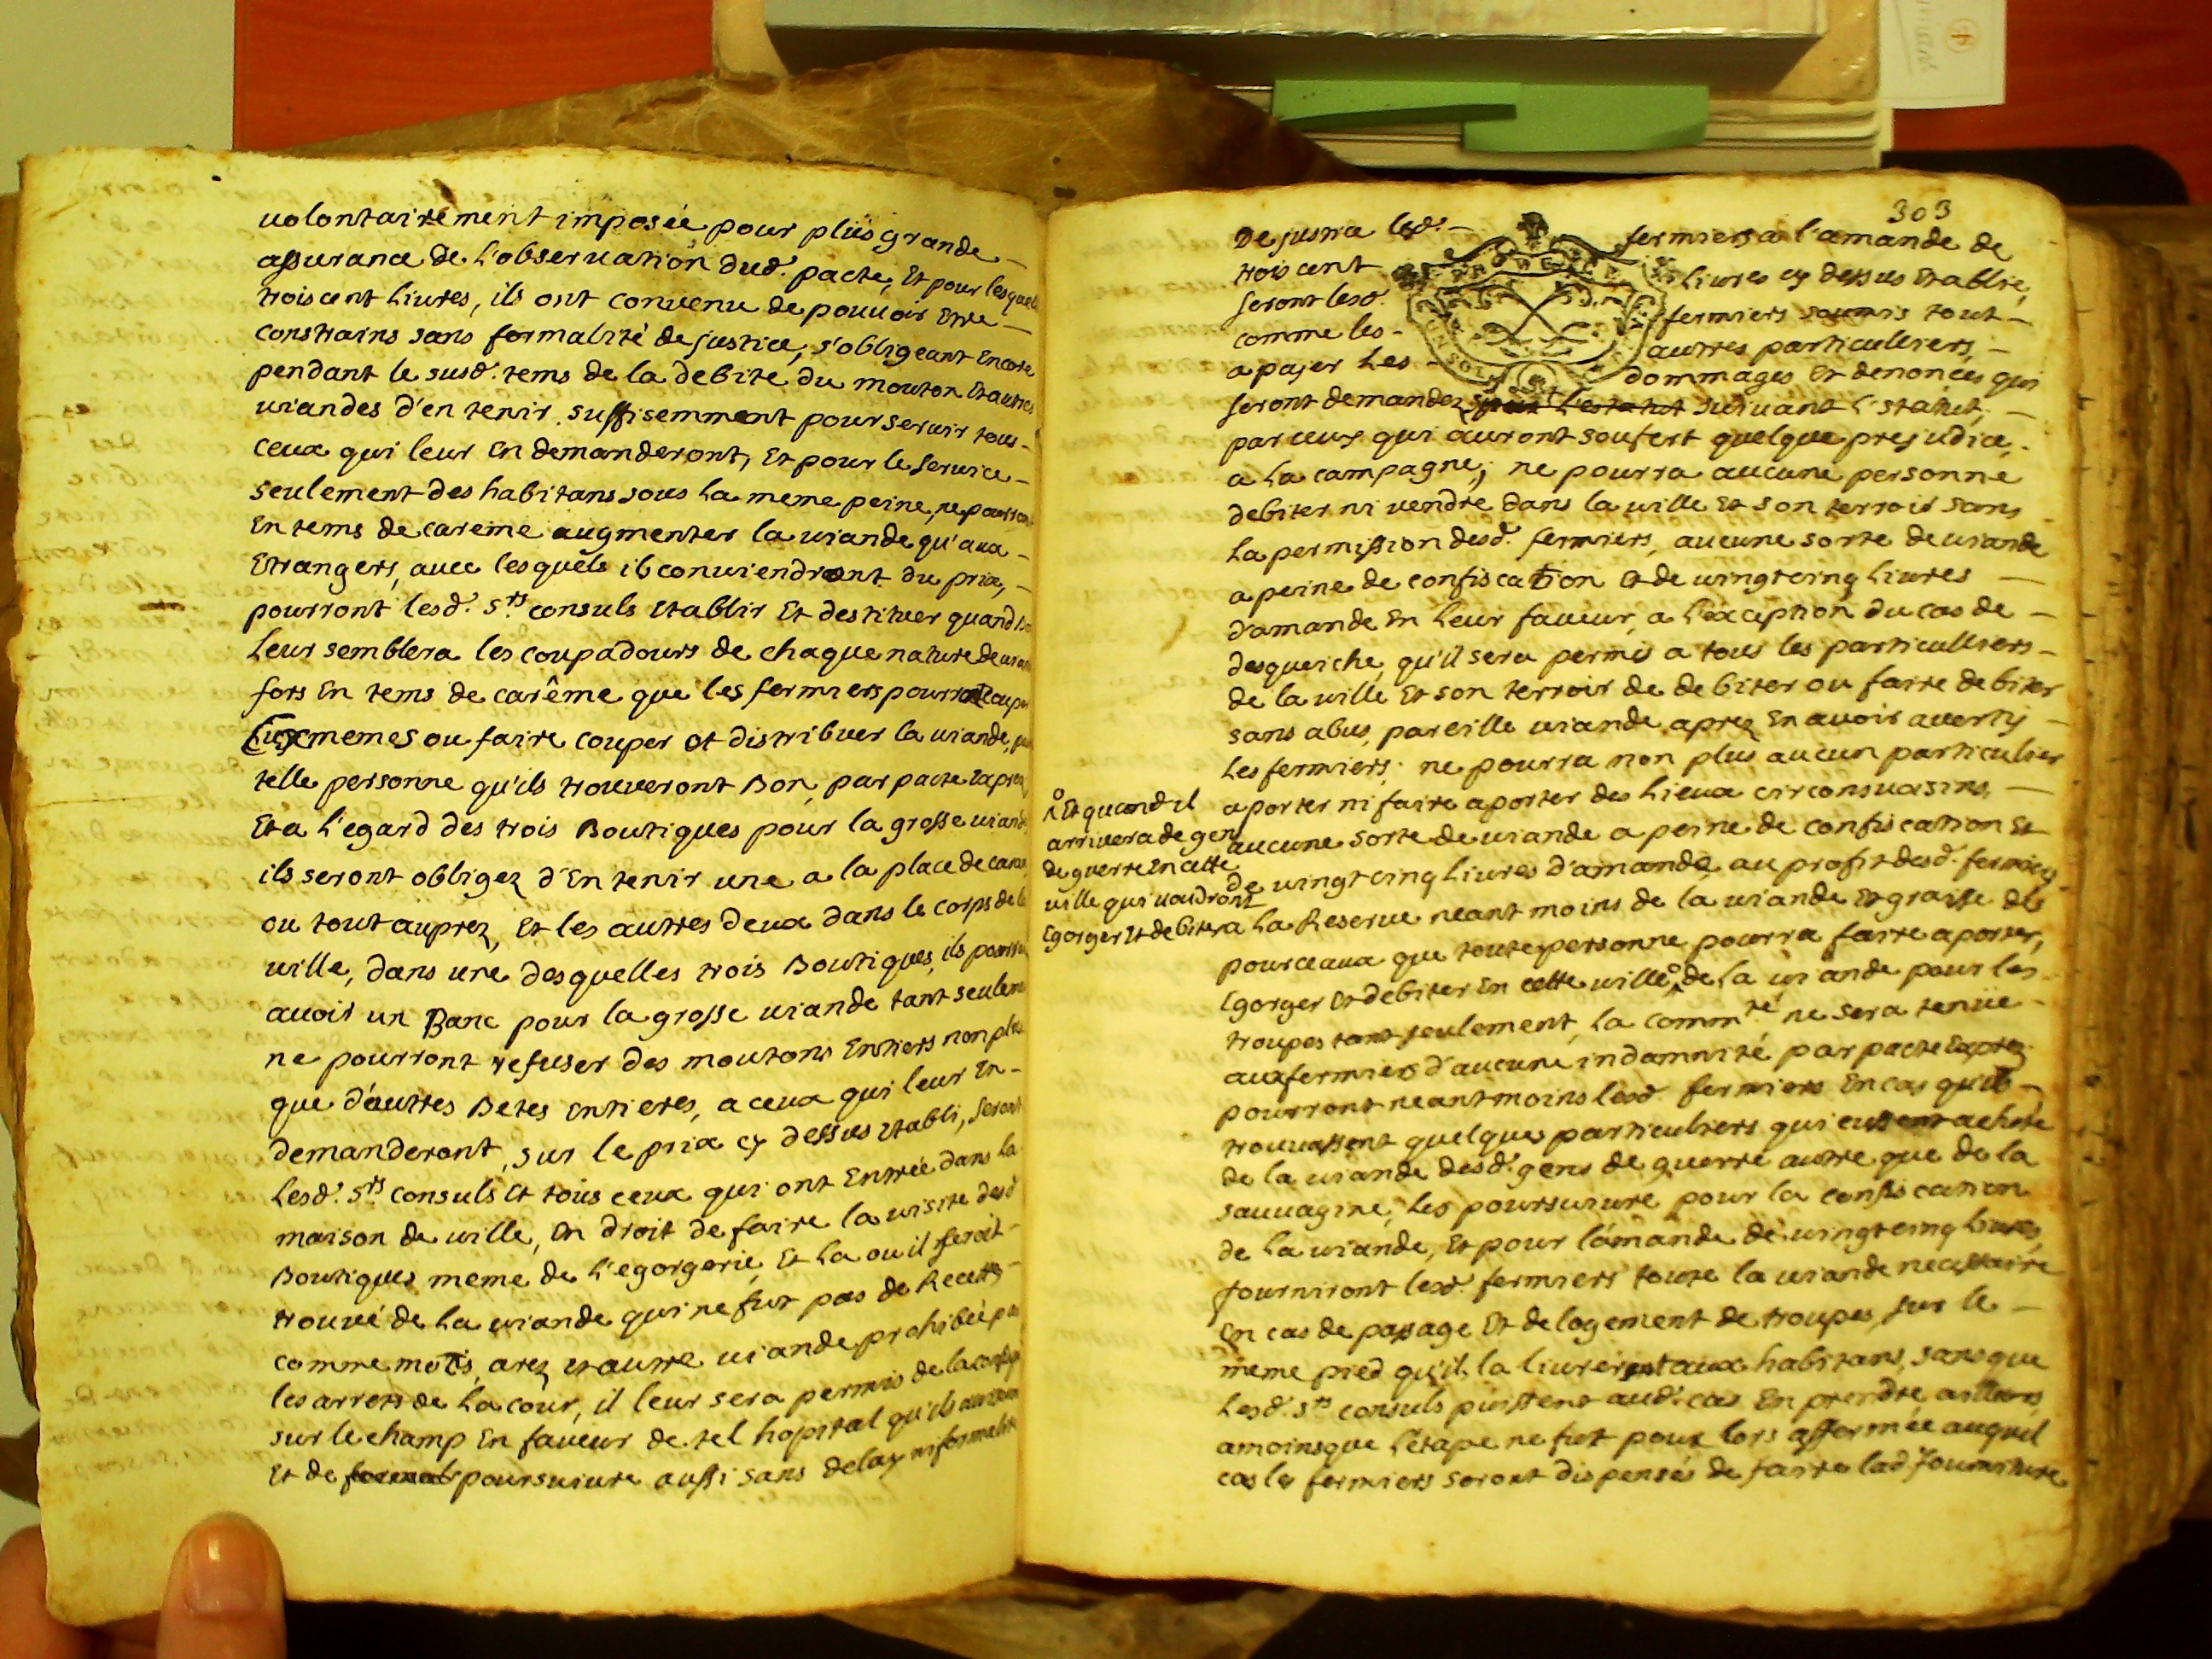 volontairement imposée pour plus grande
assurance de l'observation dud. pacte, Et pour lesquels
trois cent livres, ils ont convenu de pouvoir Etre
constrains sans formalité de justice, s'obligeant Encore
pendant le susd. tems de la debite du mouton Et autres
viandes d'en tenir suffisemment pour servir tous
ceux qui leur En demanderont, Et pour le service
seulement des habitans sous la meme peine, ne pourront
En tems de careme augmenter la viande qu'aux
Etrangers, avec lesquels ils conviendront du prix,
pourront lesd. srs consuls Etablir Et destituer quand
Leur semblera les coupadours de chaque nature de
fors En tems de carême que les fermiers pourront couper
Eux memes ou faire couper Et distribuer la viande,
telle personne qu'ils trouveront Bon, par pacte Exprez
Et a l'egard des trois Boutiques pour la grosse viande
ils seront obligez d'En tenir une a la place de
ou tout auprez, Et les autres deux dans le corps de la
ville, dans une desquelles trois Boutiques, ils pourront
avoir un Banc pour la grosse viande tant seulement
ne pourront refuser des moutons Entiers non plus
que d'autres Betes Entieres, a ceux qui leur En
demanderont, sur le prix cy dessus Etabli, seront
Lesd. srs consuls Et tous ceux qui ont Entrée dans la
maison de ville, En droit de faire la visite desd
Boutiques meme de l'egorgerie, Et La ou il seroit
trouvé de La viande qui ne fut pas de Recette
comme motis, arez Et autre viande prohibée par
les arrets de La cour, il leur sera permis de la
sur le champ En faveur de tel hopital qu'ils
Et de poursuivre aussi sans delay ni formalité
303
De justice lesd. fermiers a l'amande de
trois cent Livres cy dessus Etablie,
seront lesd. fermiers soumis tout
comme les autres particulliers,
a payer Les dommages Et denonces qui
seront demandez suivant l'statut,
par ceux qui auront soufert quelque prejudice,
a la campagne; ne pourra aucune personne
debiter ni vendre dans la ville Et son terroir sans
La permission desd. fermiers, aucune sorte de viande
a peine de confiscation Et de vingt cinq Livres
d'amande En Leur faveur, a l'exception du cas de
desqueiche, qu'il sera permis a tous les particulliers
de la ville Et son terroir de debiter ou faire debiter
sans abus, pareille viande aprez En avoir averty
Les fermiers; ne pourra non plus aucun particulier
aporter ni faire aporter des Lieux circonvoisins,
aucune sorte de viande a peine de confiscation Et
de vingt cinq Livres d'amande, au profit desd. fermiers
a La Reserve neant moins de la viande Et graisse de
pourceaux que toute personne pourra faire aporter,
Egorger Et debiter En cette ville, de La viande pour les
troupes tant seulement, La commté ne sera tenüe
aux fermiers d'aucune indamnité par pacte Exprez
pourront neantmoins lesd. fermiers En cas qu'ils
trouvassent quelques particulliers qui eussent acheté
de la viande desd. gens de guerre autre que de la
sauvagine, Les poursuivre pour la confiscation
de La viande, Et pour l'amande de vingt cinq Livres,
fourniront lesd. fermiers toute la viande necessaire
En cas de passage Et de logement de troupes, sur le
meme pied qu'ils la livreront aux habitans, sans que
Lesd. srs consuls puissent aud. cas En prendre ailleurs,
amoinsque l'étape ne fut pour lors affermée auquel
cas les fermiers seront dispensés de faire lad. fourniture
Et quand il
arrivera de gens
de guerre En cette
ville qui voudront
Egorger Et debiter